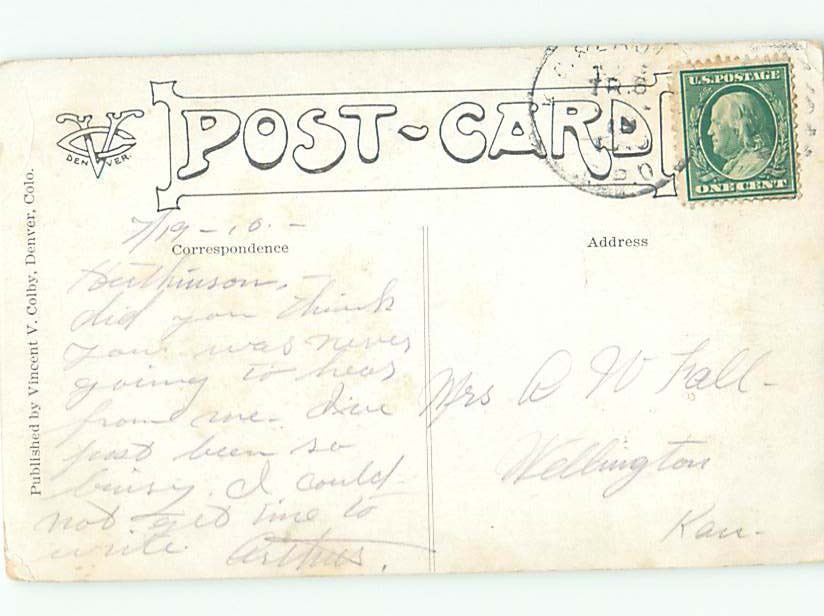 POST-CARD
U.S. POSTAGE
ONE CENT
TR. 6
DENVER.
VC
Published by Vincent V. Colby, Denver, Colo.
7/19 - 10. -
Correspondence
Address
Hutchinson, -
did you think
you was never
going to hear
from me. I've
just been so
busy. I could
not get time to
write. Arthur.
Mrs W Fall -
Wellington
Kan -